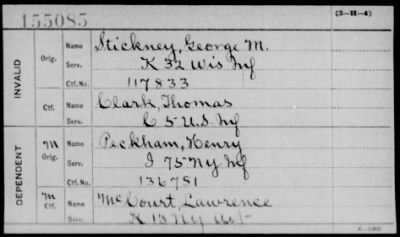 155085
(3-H-4)
INVALID
Orig.
Name Stickney, George M.
Serv. K 32 Wis Inf
Ctf. No. 117833
Ctf.
Name Clark, Thomas
Serv. C 5 U.S. Inf
DEPENDENT
M
Orig.
Name Peckham, Henry
Serv. I 75 Ny Inf
Ctf. No. 136751
M
Ctf.
Name McCourt, Lawrence
Serv. K 15 Ny Art